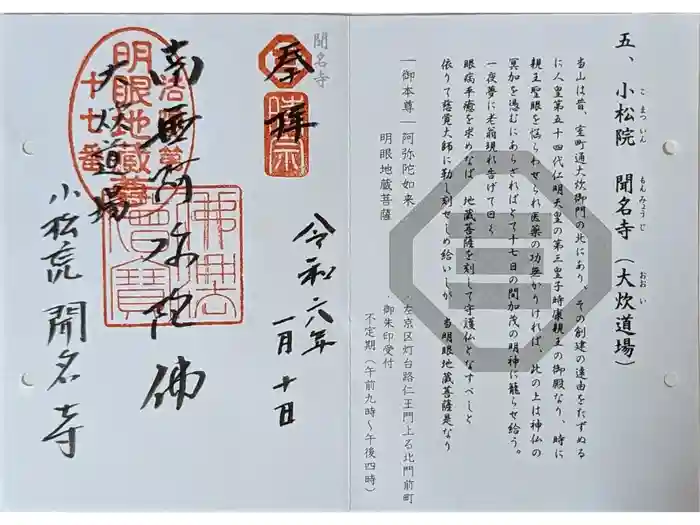 五、小松院 聞名寺（大炊道場）
こまついん もんみょうじ おおい
当山は昔、室町通大炊御門の北にあり、その創建の遠由をたずぬる
に人皇第五十四代仁明天皇の第三皇子時康親王の御殿なり、時に
親王聖眼を悩らわせられ医薬の功無かりければ、此の上は神仏の
冥加を憑むにあらざればとて十七日の間加茂の明神に籠らせ給う。
一夜夢に老翁現れ告げて曰く
眼病平癒を求めなば、地蔵菩薩を刻して守護仏となすべしと
依りて慈覚大師に勅し刻せしめ給いしが 当明眼地蔵菩薩是なり
一御本尊一 阿弥陀如来
明眼地蔵菩薩
・左京区灯台路仁王門上る北門前町
・御朱印受付
不定期（午前九時〜午後四時）
聞名寺
奉拝
時宗
令和六年
一月十日
南無阿弥陀佛
佛法僧寶
明眼地蔵尊
十七番
大炊道場
小松院 聞名寺